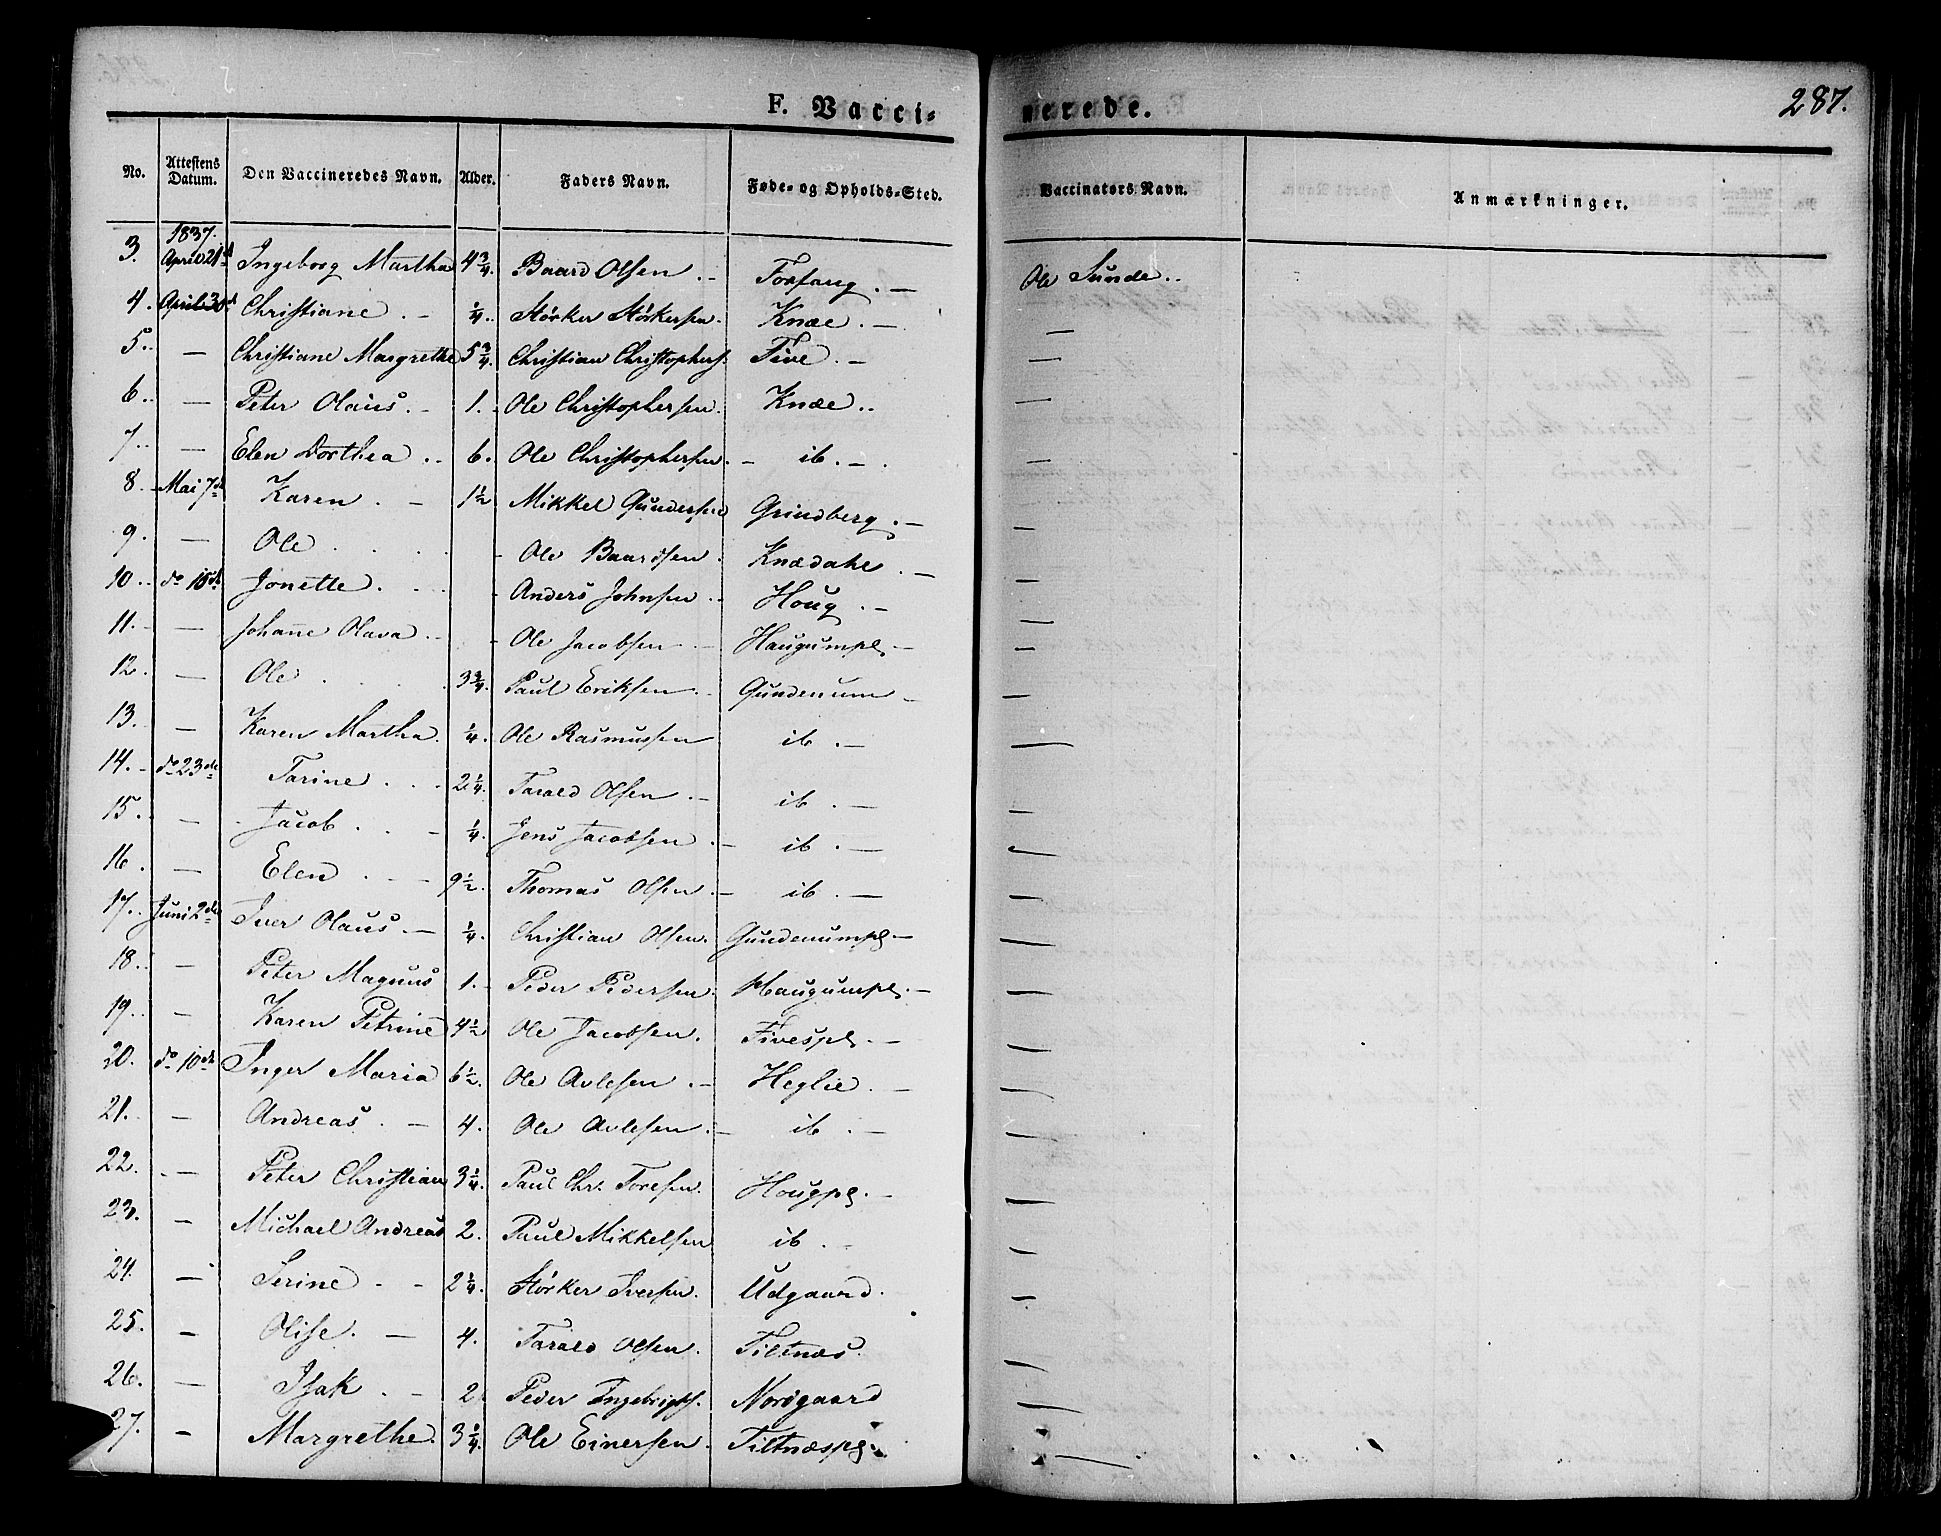 F. Vacci- nerede. 287.
No. Attestens Datum. Den Vaccineredes Navn. Alder. Faders Navn. Føde- og Opholds-Sted. Vaccinators Navn. Anmærkninger.
1837.
3. April 21d Ingeborg Martha 4 3/4. Baard Olsen.- Forfang.- Ole Sunde..
4. April 30d Christiane.- 1/4. Størker Størkersen. Knæ.- —
5.. — Christiane Margrethe 5 3/4. Christian Christophers. Five.- —
6.. — Peter Olaus.- 1.- Ole Christophersen. Knæe.. —
7.. — Elen Dorthea.. 6. Ole Christophersen.- ib.-. —
8.. Mai 7d Karen.- 1 1/2 Mikkel Gundersen Grindberg.- —
9. — Ole . . . Ole Baardsen. Knædahl.- —
10.. do 15de Jonette. . . Anders Johnsen.. Houg.- —
11.- — Johanne Olava.- Ole Jacobsen.- Haugumpl.- —
12. — Ole . . . 3 3/4. Paul Eriksen.. Gundenum- —
13. — Karen Martha. 1/4. Ole Rasmussen ib.- —
14.- do 23de Tarine . . . 2 1/4. Tarald Olsen.- ib.- —
15. — Jacob . . - 1/4. Jens Jacobsen.- ib.- —
16. — Elen . - - 9 1/2. Thomas Olsen.- ib.- —
17.. Juni 2de Iver Olaus.- 1/4. Christian Olsen. Gundenumpl.- —
18.. — Peter Magnus 1.- Peder Pedersen. Haugumpl.- —
19.. — Karen Petrine 4 1/2 Ole Jacobsen. Fivespl.- —
20. do 10de Inger Maria 6 1/2. Ole Avlesen.- Heglie.- —
21.. — Andreas.- 4. Ole Avlesen.- ib.- —
22.. — Peter Christian 3 1/4. Paul Chr. Toresen. Hougpl.- —
23. — Michael Andreas 2. Paul Mikkelsen ib.- —
24. — Serine - - 2 1/4. Størker Iversen. Udgaard. —
25. — Olise.- 4. Tarald Olsen. Tiltnæs. —
26. — Isak.- 2. Peder Ingebrigts. Nordgaard —
27. — Margrethe. 3 1/4. Ole Einersen. Tiltnæspl. —